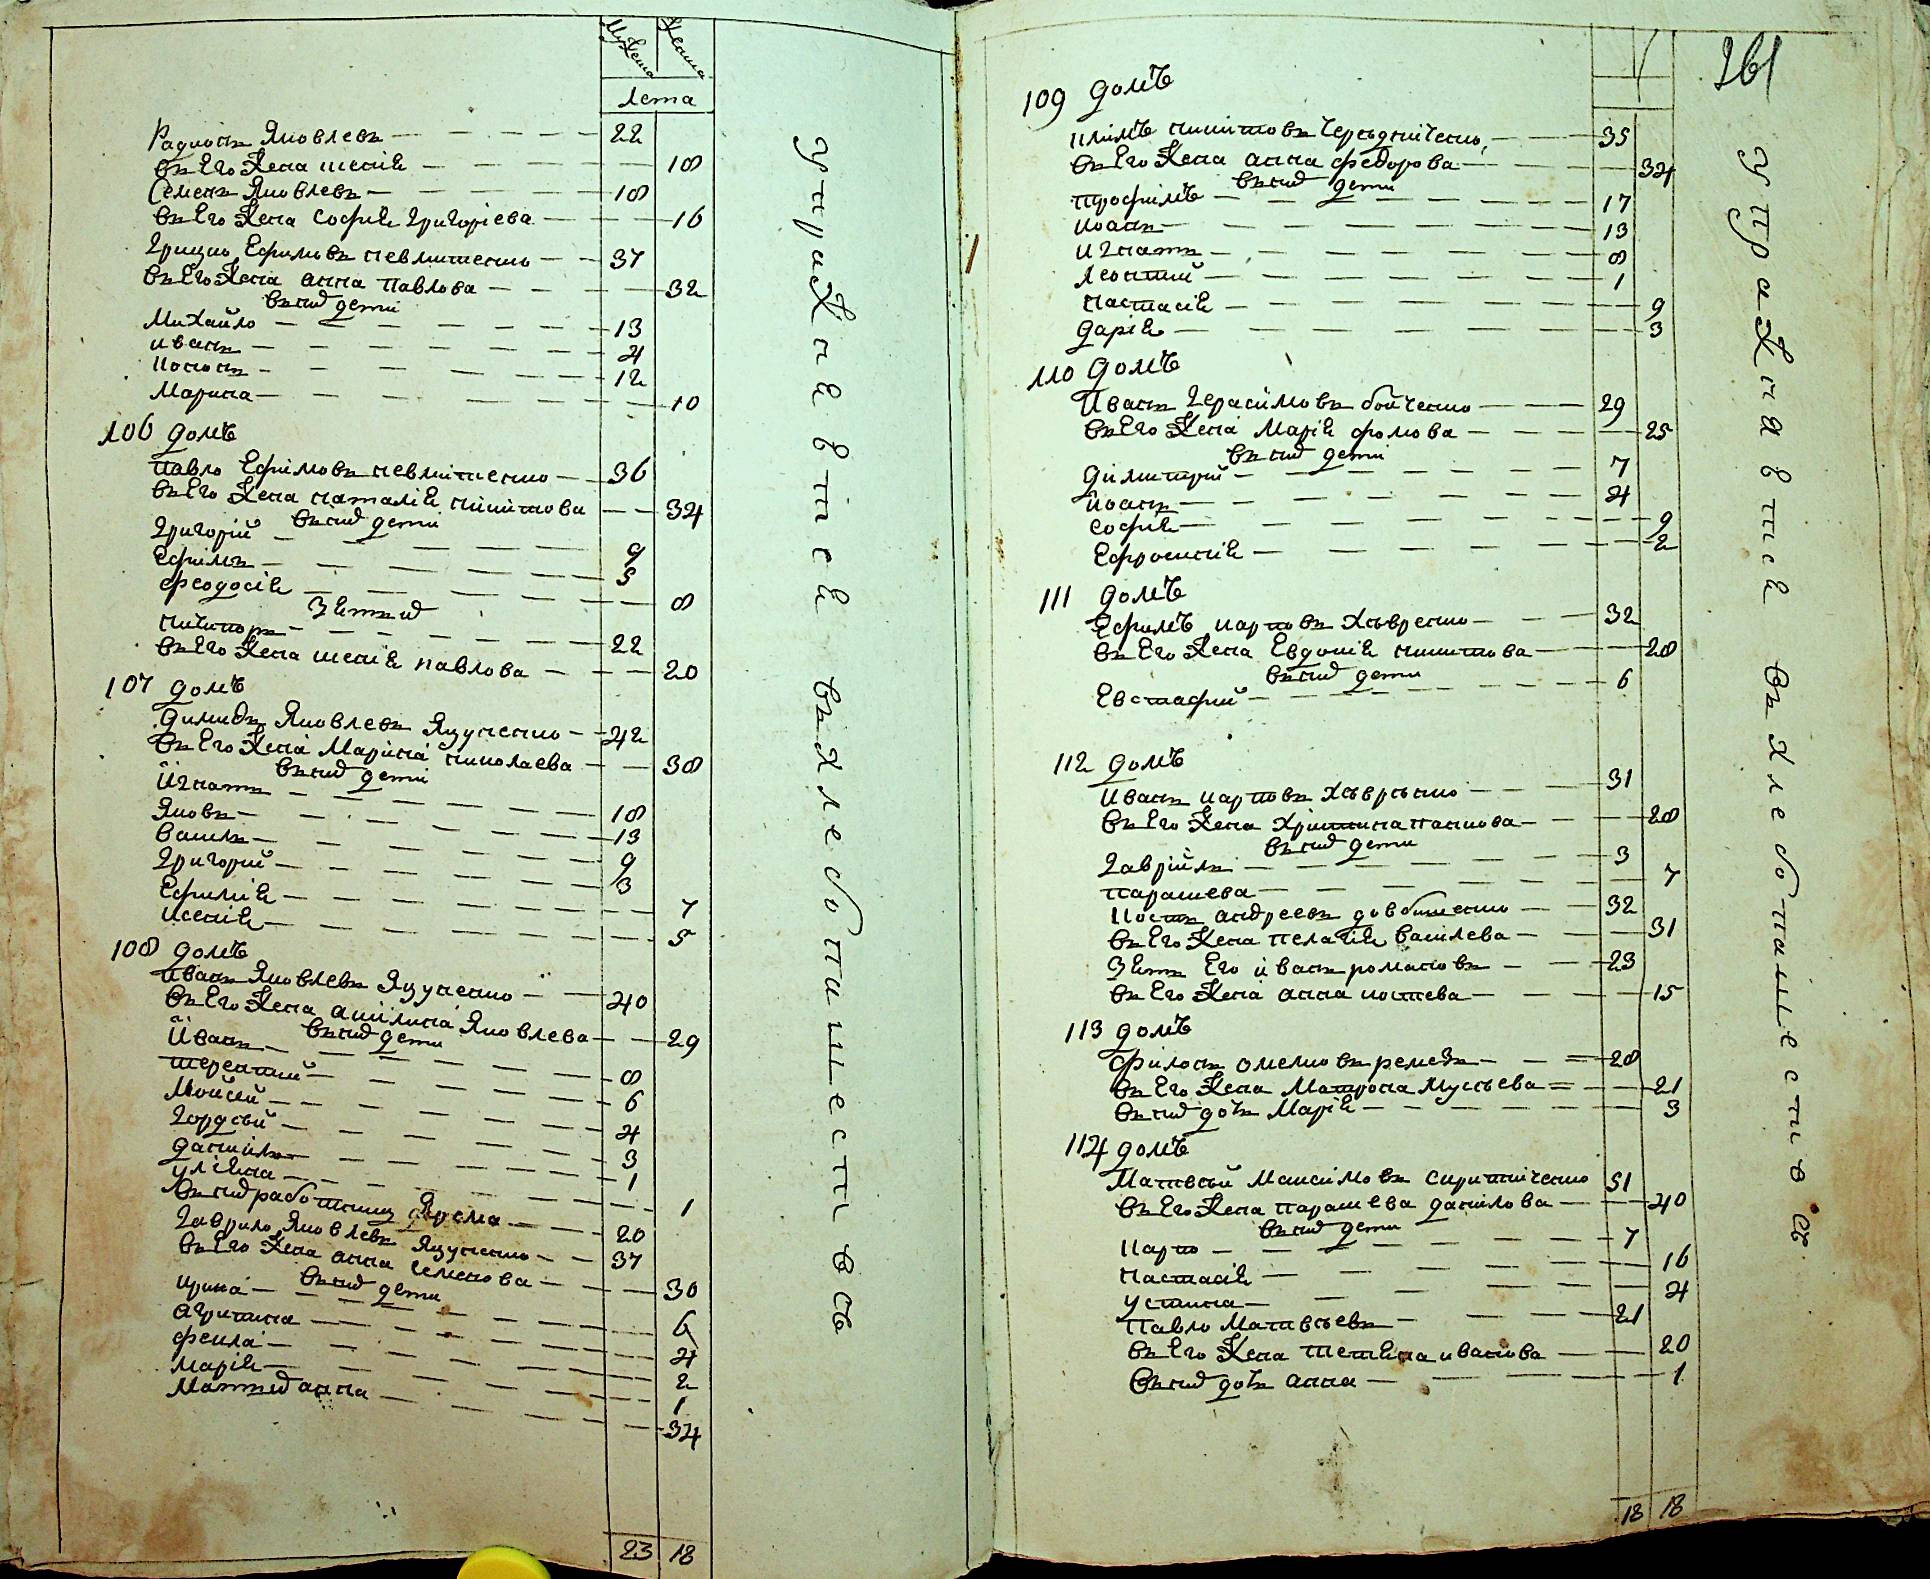 Мужеска Женска
Лета
Радионъ Яковлевъ 22
въ Его Жена 18
Семенъ Яковлевъ 18
въ Его Жена Софія Григоріева 16
Грицко Ефимовъ 37
въ Его Жена анна павлова 32
въ них дети
Михайло 13
иванъ 4
12
Марина 10
106 домъ
павло Ефимовъ 36
въ Его Жена наталія никитова 34
въ них дети
Григорій 9
Ефимъ 5
феодосія 8
Зять их
никиѳоръ 22
въ Его Жена павлова 20
107 домъ
димидъ Яковлевъ Яцученко 42
въ Его Жена Марина николаева 38
въ них дети
Игнатъ 18
Яковъ 13
василь 9
Григорий 3
Ефимія 7
ксенія 5
108 домъ
иванъ Яковлевъ Яцученко 40
въ Его Жена акилина Яковлева 29
въ них дети
Иванъ 8
терентий 6
Мойсей 4
Гордѣй 3
данійлъ 1
уліяна 1
въ них работникъ Ярема 20
Гаврило Яковлевъ Яцученко 37
въ Его Жена анна семенова 30
въ них дети
ирина 6
агрипина 4
фекла 2
марія 1
Мать их анна 34
23 18
упражняется въ хлебопашествосъ
261
109 домъ
климъ никитовъ 35
въ Его Жена анна федорова 34
въ них дети
трофимъ 17
иоанъ 13
игнатъ 8
леонтий 1
настасія 9
дарія 3
110 домъ
Иванъ Герасимовъ бойченко 29
въ Его Жена Марія фомова 25
въ них дети
димитрий 7
иоанъ 4
софія 9
Ефросинія 2
111 домъ
Ефимъ карповъ 32
въ Его Жена Евдокія никитова 28
въ них дети
Евстафий 6
112 домъ
Иванъ карповъ 31
въ Его Жена христина 28
въ них дети
Гаврійлъ 3
парашева 7
костъ андреевъ довбишенко 32
въ Его Жена пелагія василева 31
Зять Его иванъ романовъ 23
въ Его Жена анна костева 15
113 домъ
филонъ омелковъ ремезъ 28
въ Его Жена Матрона Мусѣева 21
въ них дочь Марія 3
114 домъ
Матвѣй Максимовъ 51
въ Его Жена парашева данилова 40
въ них дети
Карпо 7
настасія 16
устина 4
павло Матвѣевъ 21
въ Его Жена тетяна иванова 20
въ них дочь анна 1
18 18
упражняется въ хлебопашествося